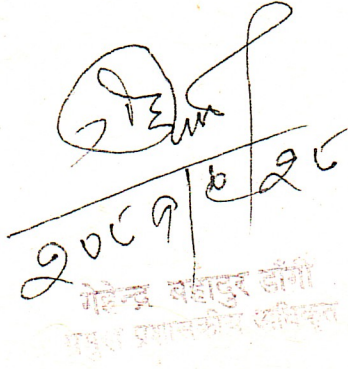 २०८१|७|२८
गेहेन्द्र बहादुर डाँगी
प्रमुख प्रशासकीय अधिकृत